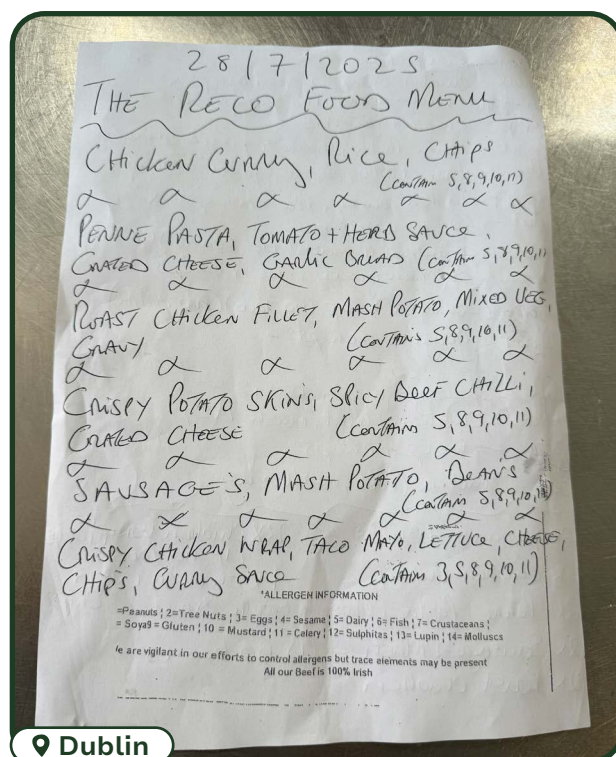 28/7/2025
THE RECO FOOD MENU
CHicken Curry, Rice, CHips
(contain 5,8,9,10,11)
PENNE PASTA, TOMATO + HERB SAUCE,
GRATED CHEESE, GARLIC BREAD (contain 5,8,9,10,11
ROAST CHICKEN FILLET, MASH POTATO, MIXED VEG,
GRAVY (CONTAINS 5,8,9,10,11)
CRISPY POTATO SKINS, SPICY BEEF CHILLI,
GRATED CHEESE (CONTAIN 5,8,9,10,11)
SAUSAGE'S, MASH POTATO, BEANS
(CONTAIN 5,8,9,10,11)
CRISPY CHICKEN WRAP, TACO MAYO, LETTUCE, CHEESE,
CHIPS, CURRY SAUCE (CONTAIN 3,5,8,9,10,11)
*ALLERGEN INFORMATION
=Peanuts ¦ 2=Tree Nuts ¦ 3= Eggs ¦ 4= Sesame ¦ 5= Dairy ¦ 6= Fish ¦ 7= Crustaceans ¦
= Soya9 = Gluten ¦ 10 = Mustard ¦ 11 = Celery ¦ 12= Sulphites ¦ 13= Lupin ¦ 14= Molluscs
/e are vigilant in our efforts to control allergens but trace elements may be present
All our Beef is 100% Irish
Dublin